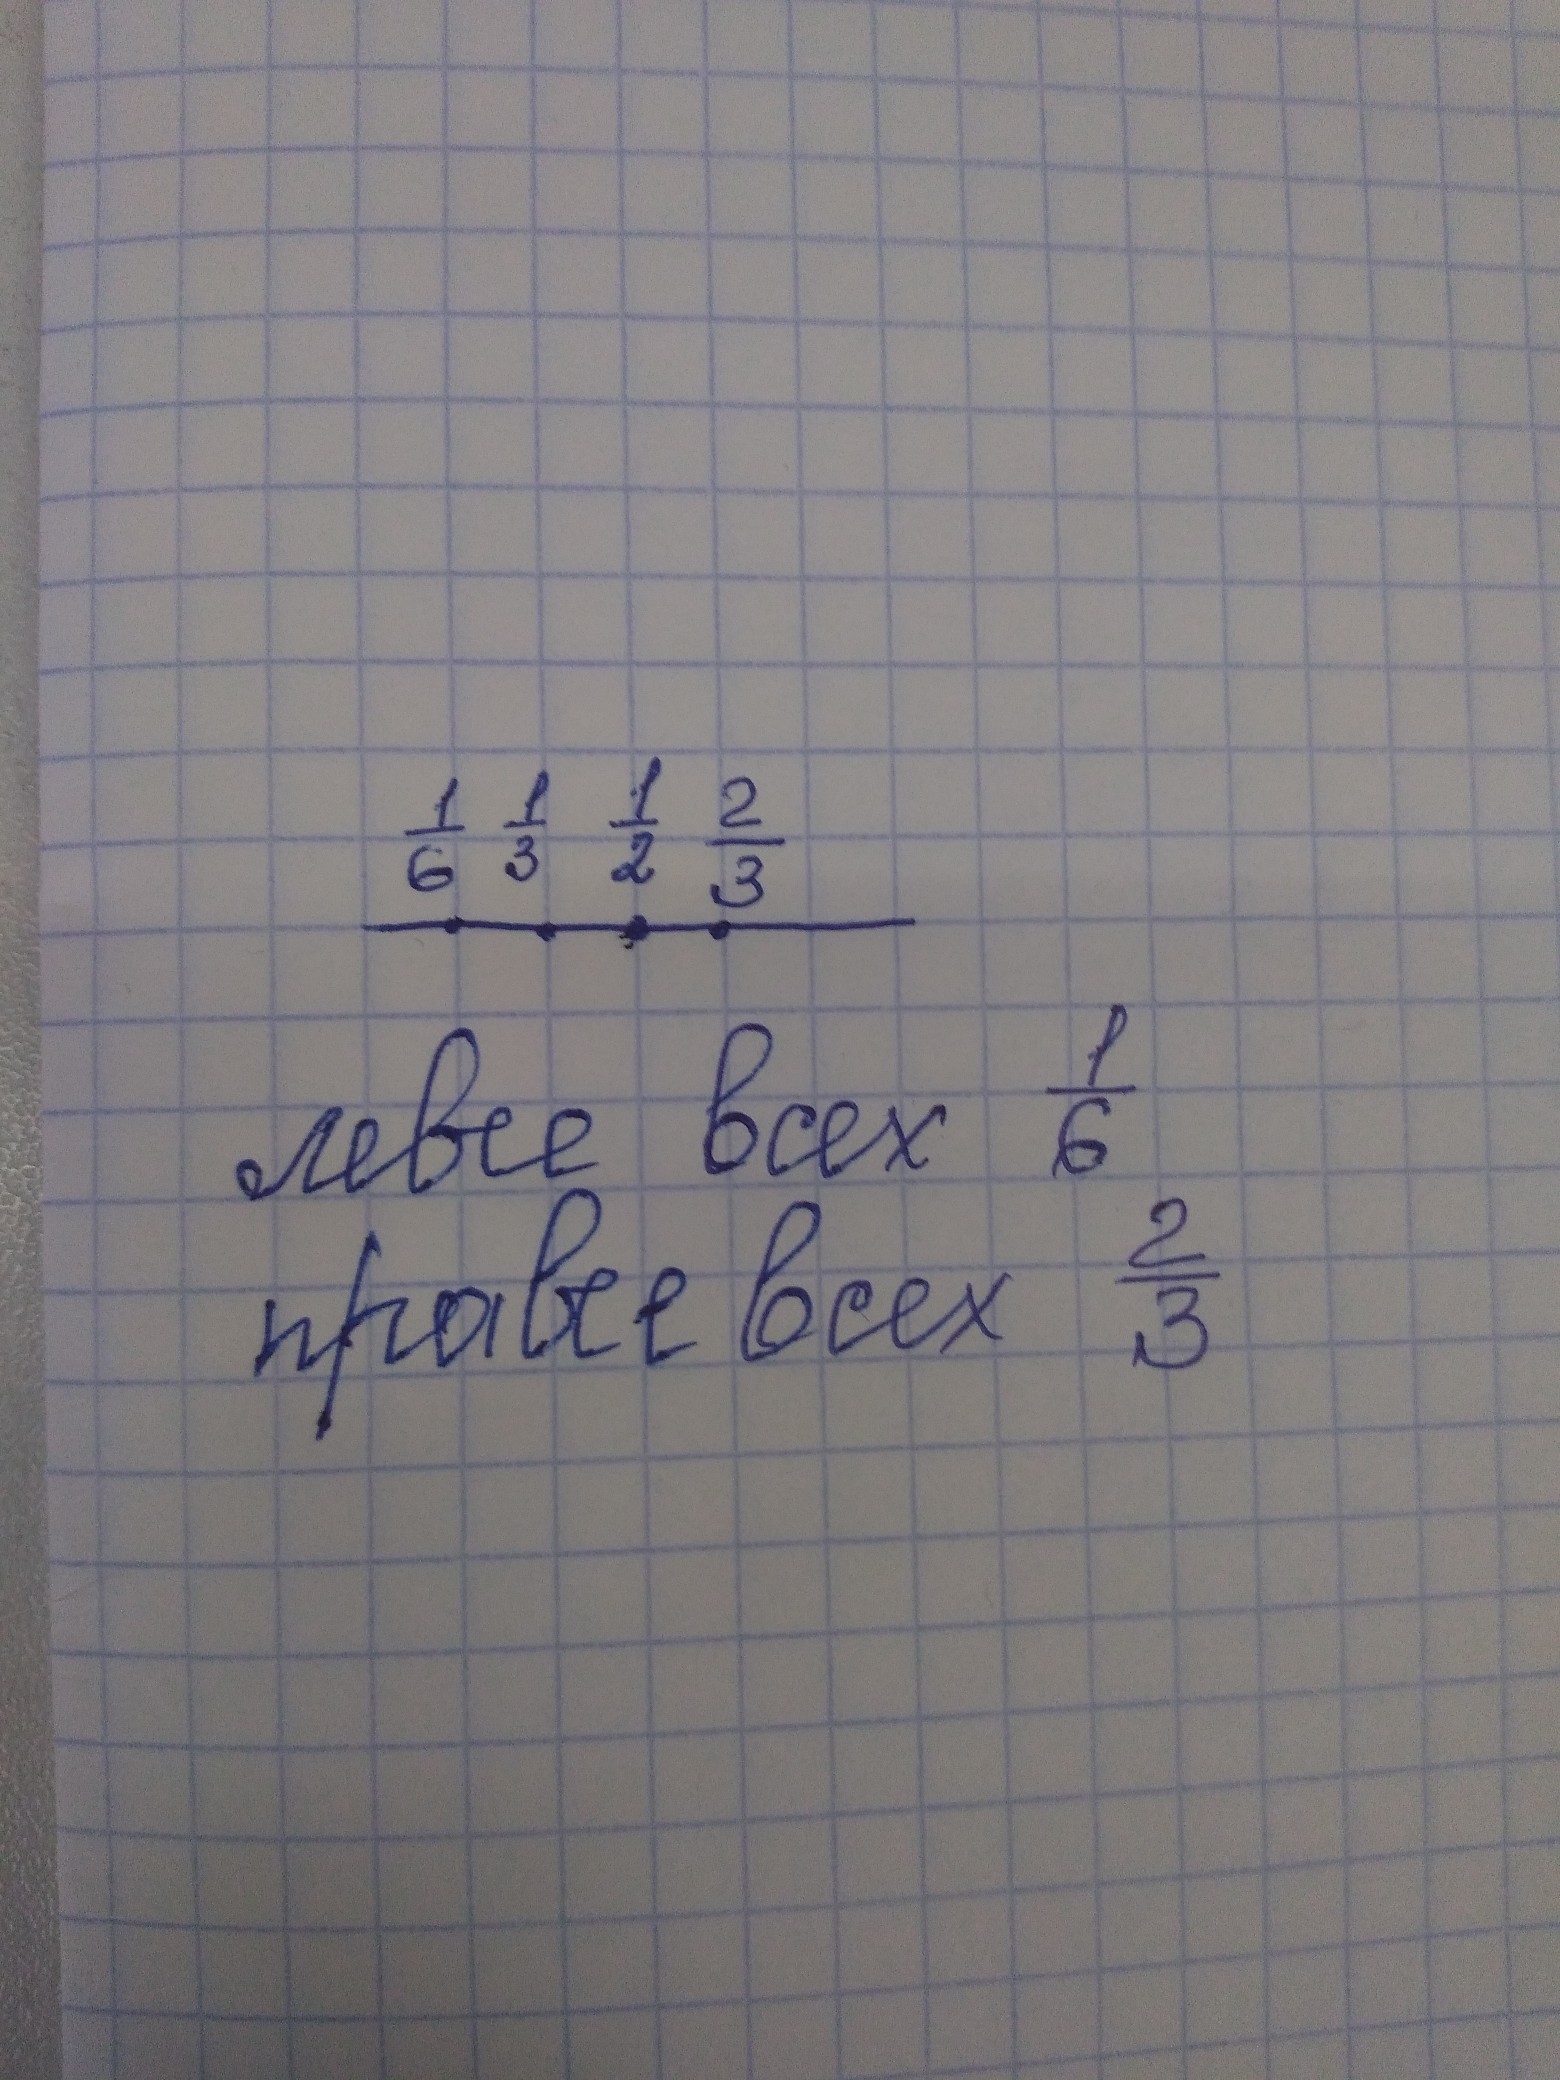 1/6 1/3 1/2 2/3
левее всех 1/6
правее всех 2/3